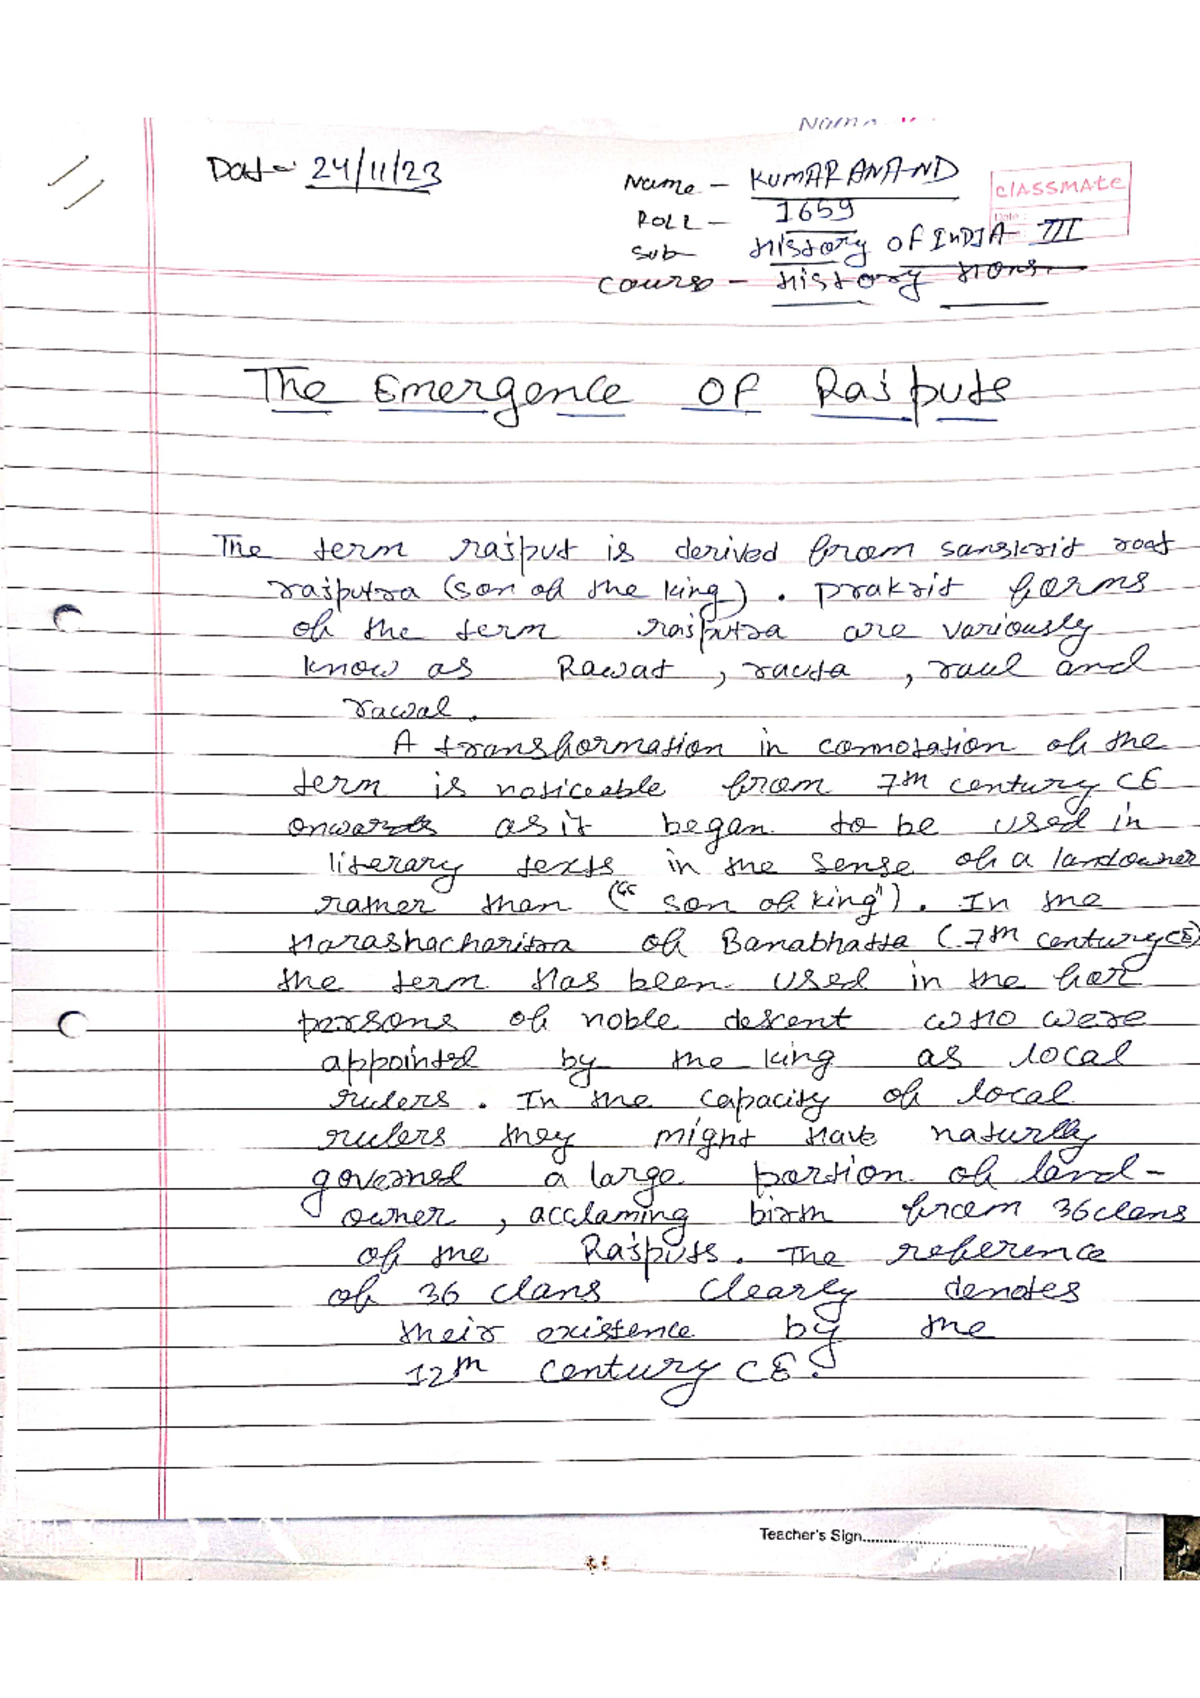 Date - 24/11/23
Name - KUMAR ANAND
CLASSMATE
ROLL - 1659
Date :
Sub - History of INDIA - III
Course - History Hons.
The Emergence OF Rajputs
The term rajput is derived from sanskrit root
rajputra (son of the king). Prakrit forms
of the term rajputra are variously
know as Rawat, rauta, raul and
rawal.
A transformation in connotation of the
term is noticeable from 7th century CE
onwards as it began to be used in
literary texts in the sense of a landowner
rather than (" son of king"). In the
Harashacharitra of Banabhatta (7th century CE)
the term has been used in the for
persons of noble descent who were
appointed by the king as local
rulers. In the capacity of local
rulers they might have naturlly
governed a large portion of land-
owner, acclaming birth from 36 clans
of the Rajputs. The reference
of 36 clans clearly denotes
their existence by the
12th century CE.
Teacher's Sign